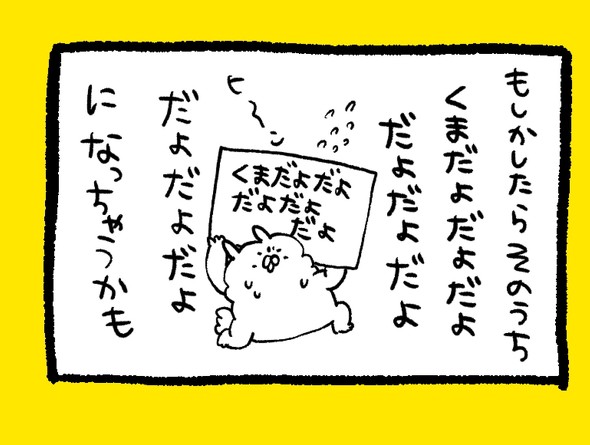 もしかしたらそのうち
くまだよだよだよ
だよだよだよ
ヒ〜〜
くまだよだよ
だよだよ
だよ
だよだよだよ
になっちゃうかも